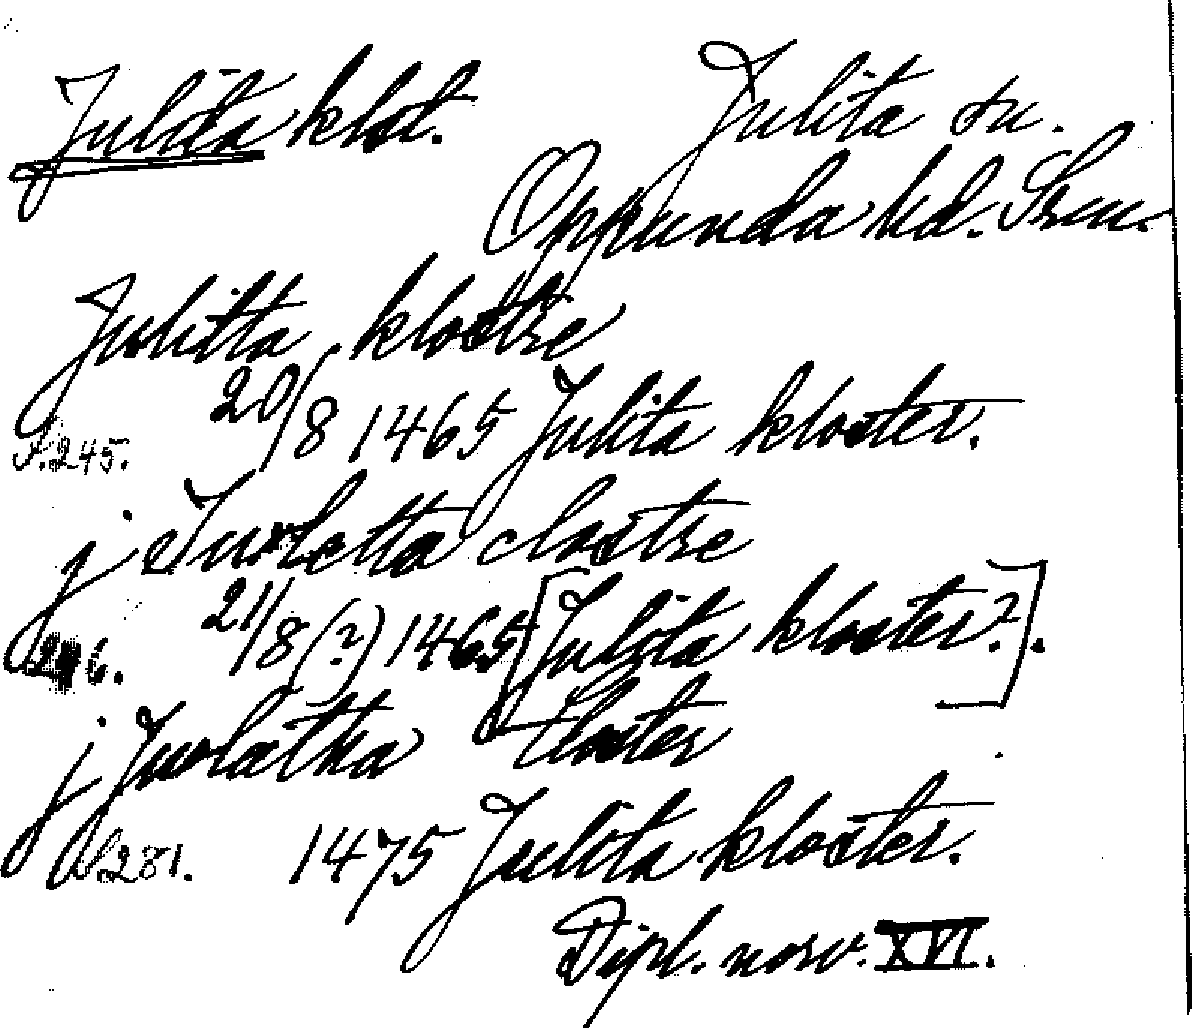 Julita klost. Julita sn.
Oppunda hd. Srm.
Julitta klostre
S. 245. 20/8 1465 Julita kloster.
j Juoletta clostre
246. 21/8 (?) 1465 [Julita kloster?].
j Juolatka Closter
S. 281. 1475 Julita kloster.
Dipl. norv. XVI.